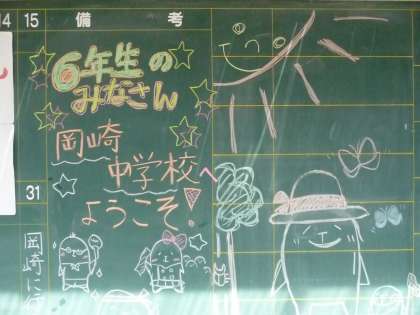 14 15 備考
6年生の
みなさん
岡崎
中学校へ
ようこそ!
31
岡崎に